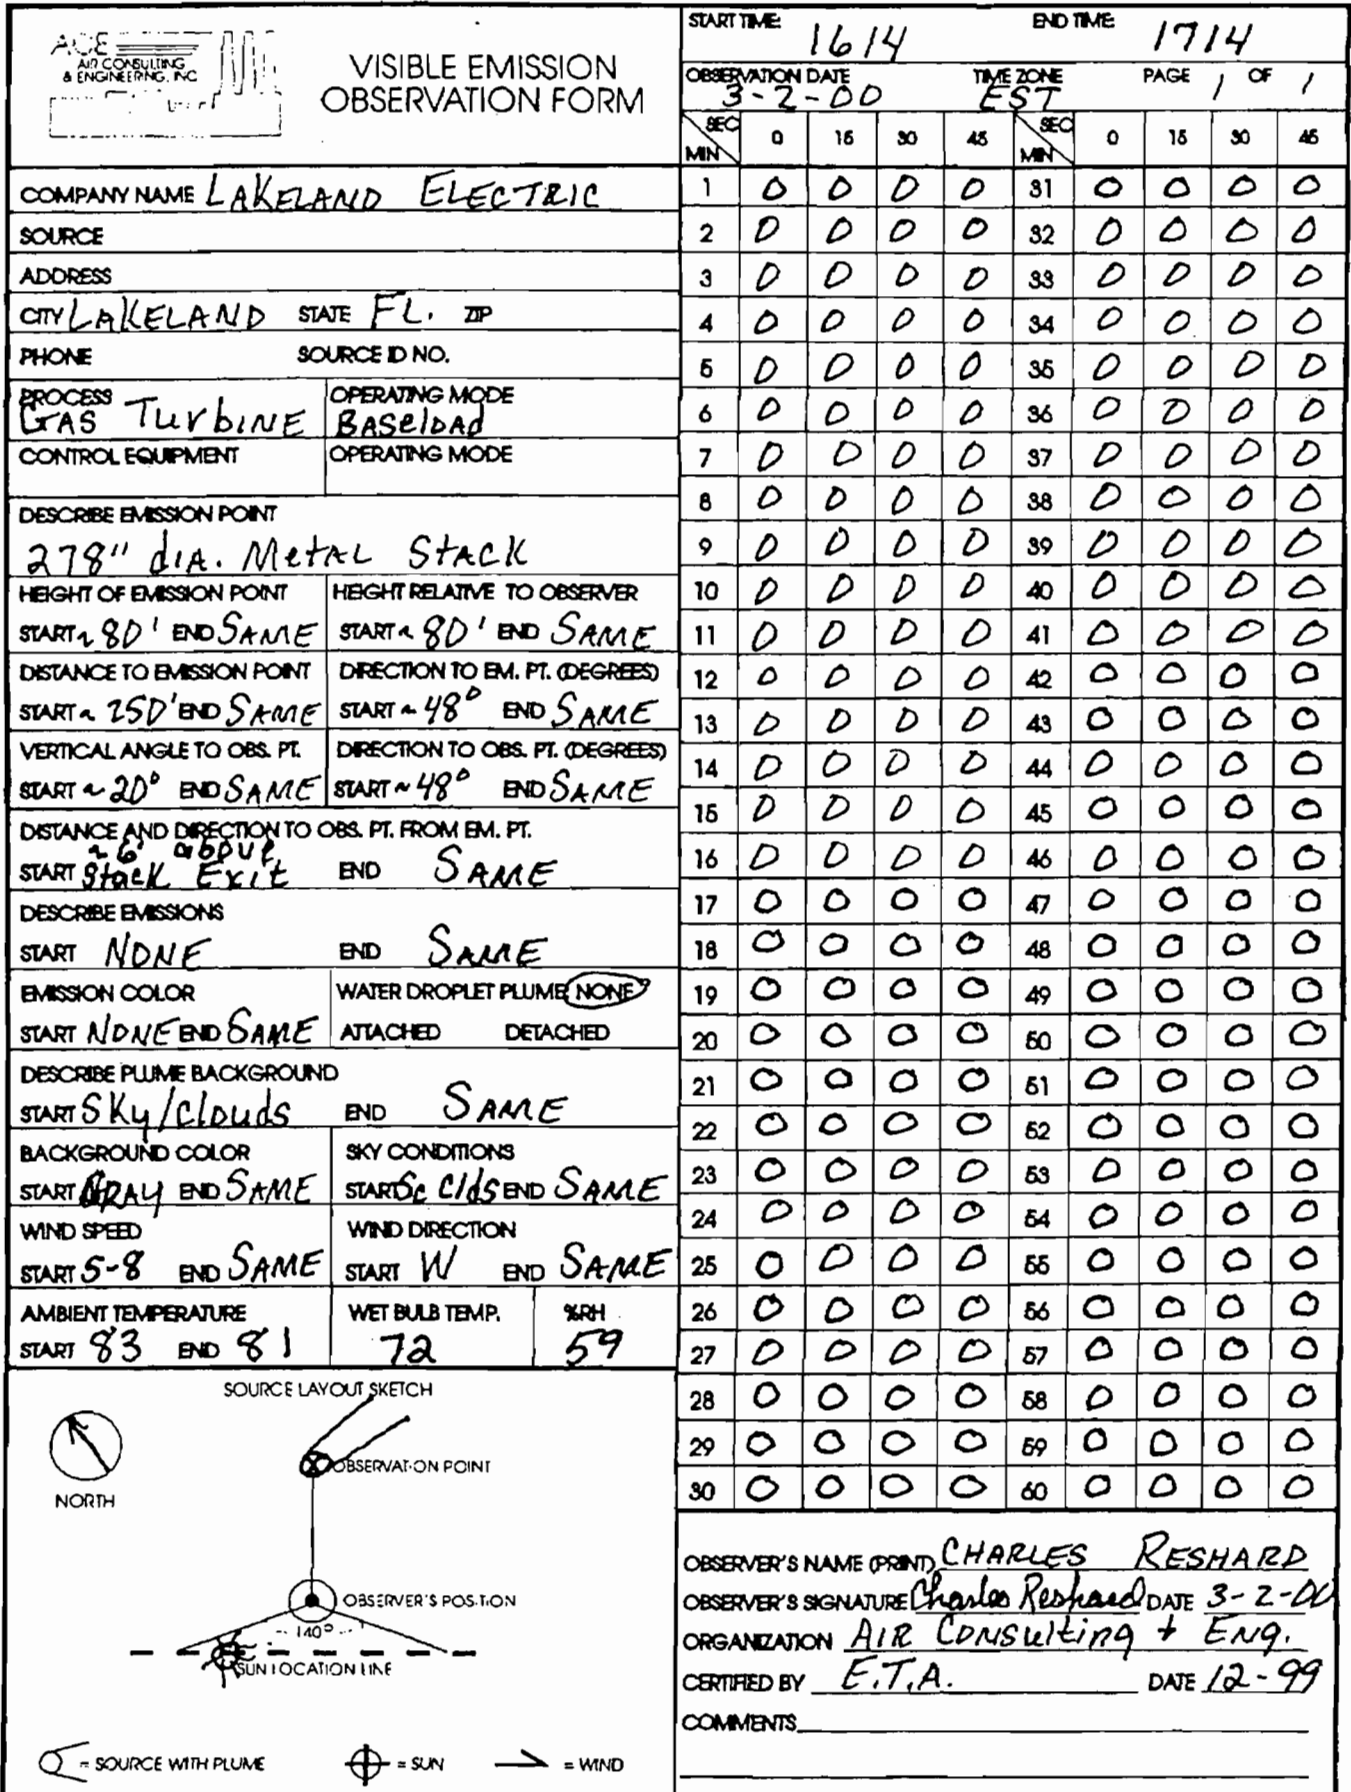 ACE
AIR CONSULTING
& ENGINEERING, INC
VISIBLE EMISSION
OBSERVATION FORM
COMPANY NAME LAKELAND ELECTRIC
SOURCE
ADDRESS
CITY LAKELAND STATE FL. ZIP
PHONE SOURCE ID NO.
PROCESS OPERATING MODE
GAS TurbINE BASElOAd
CONTROL EQUIPMENT OPERATING MODE
DESCRIBE EMISSION POINT
278" dIA. MetAL StACK
HEIGHT OF EMISSION POINT HEIGHT RELATIVE TO OBSERVER
START ~ 80' END SAME START ~ 80' END SAME
DISTANCE TO EMISSION POINT DIRECTION TO EM. PT. (DEGREES)
START ~ 250' END SAME START ~ 48° END SAME
VERTICAL ANGLE TO OBS. PT. DIRECTION TO OBS. PT. (DEGREES)
START ~ 20° END SAME START ~ 48° END SAME
DISTANCE AND DIRECTION TO OBS. PT. FROM EM. PT.
~ 6' above
START Stack Exit END SAME
DESCRIBE EMISSIONS
START NONE END SAME
EMISSION COLOR WATER DROPLET PLUME NONE
START NONE END SAME ATTACHED DETACHED
DESCRIBE PLUME BACKGROUND
START SKy/Clouds END SAME
BACKGROUND COLOR SKY CONDITIONS
START GRAY END SAME START Sc Clds END SAME
WIND SPEED WIND DIRECTION
START 5-8 END SAME START W END SAME
AMBIENT TEMPERATURE WET BULB TEMP. %RH
START 83 END 81 72 59
SOURCE LAYOUT SKETCH
NORTH
OBSERVATION POINT
OBSERVER'S POSITION
140°
SUN LOCATION LINE
= SOURCE WITH PLUME = SUN = WIND
START TIME: 1614 END TIME: 1714
OBSERVATION DATE TIME ZONE PAGE 1 OF 1
3-2-00 EST
SEC MIN 0 15 30 45 SEC MIN 0 15 30 45
1 0 0 0 0 31 0 0 0 0
2 0 0 0 0 32 0 0 0 0
3 0 0 0 0 33 0 0 0 0
4 0 0 0 0 34 0 0 0 0
5 0 0 0 0 35 0 0 0 0
6 0 0 0 0 36 0 0 0 0
7 0 0 0 0 37 0 0 0 0
8 0 0 0 0 38 0 0 0 0
9 0 0 0 0 39 0 0 0 0
10 0 0 0 0 40 0 0 0 0
11 0 0 0 0 41 0 0 0 0
12 0 0 0 0 42 0 0 0 0
13 0 0 0 0 43 0 0 0 0
14 0 0 0 0 44 0 0 0 0
15 0 0 0 0 45 0 0 0 0
16 0 0 0 0 46 0 0 0 0
17 0 0 0 0 47 0 0 0 0
18 0 0 0 0 48 0 0 0 0
19 0 0 0 0 49 0 0 0 0
20 0 0 0 0 50 0 0 0 0
21 0 0 0 0 51 0 0 0 0
22 0 0 0 0 52 0 0 0 0
23 0 0 0 0 53 0 0 0 0
24 0 0 0 0 54 0 0 0 0
25 0 0 0 0 55 0 0 0 0
26 0 0 0 0 56 0 0 0 0
27 0 0 0 0 57 0 0 0 0
28 0 0 0 0 58 0 0 0 0
29 0 0 0 0 59 0 0 0 0
30 0 0 0 0 60 0 0 0 0
OBSERVER'S NAME (PRINT) CHARLES RESHARD
OBSERVER'S SIGNATURE Charles Reshard DATE 3-2-00
ORGANIZATION AIR CONSulting + ENg.
CERTIFIED BY E.T.A. DATE 12-99
COMMENTS